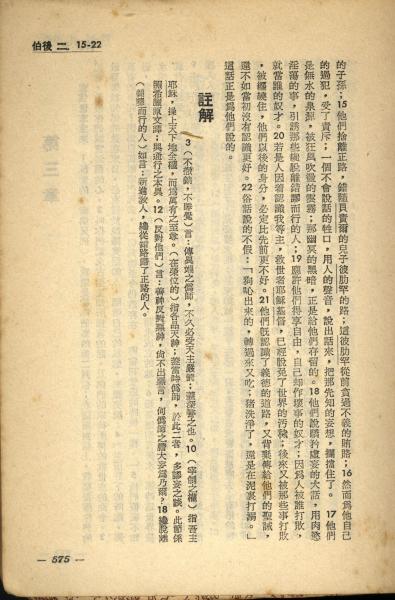 伯後 二 15-22
的子孫；15他們捨離正路，錯隨貝賓爾的兒子彼肋罕的路；這彼肋罕從前貪過不義的賄賂；16然而爲他自己
的過犯，受了責斥；一個不會說話的牲口，用人的聲音，說出話來，把那先知的妄想，攔擋住了。 17他們
是無水的泉源，被狂風吹散的雲霧；那幽冥的黑暗，正是給他們存留的。18他們說驕矜虛妄的大話，用肉慾
淫蕩的事，引誘那些纔脫離錯謬而行的人；19應許他們得享自由，自己却作壞事的奴才；因爲人被誰打敗，
就當誰的奴才。20若是人因着認識我等主，救世者耶穌基督，已經脫免了世界的汚穢；後來又被那些事打敗
，被纏繞住，他們以後的身分，必定比先前更不好。21他們旣認識了義德的道路，又背棄傳給他們的聖誡，
還不如當初沒有認識更好。22俗話說的不假：「狗嘔出來的，轉過來又吃；猪洗淨了，還是在泥裏打溺。」
這話正是爲他們說的。
註解
3（不撤銷，不睡覺）言：傳異端之僞師，不久必受天主嚴罰；蓋深警之也。10（宰制之權）指吾主
耶穌，操上天下地全權，而爲萬有之至尊。（在榮位的）指各品天神；蓋當時僞師，於此二者，多謬妄之談。此節係
照希臘原文譯；與通行之本異。12（反對他們）言：善神反對惡神，尙不出惡言，何僞師之膽大妄爲乃爾？18纔脫離
（錯謬而行的人）如言：新進敎人，纔從錯路歸了正路的人。
— 575 —